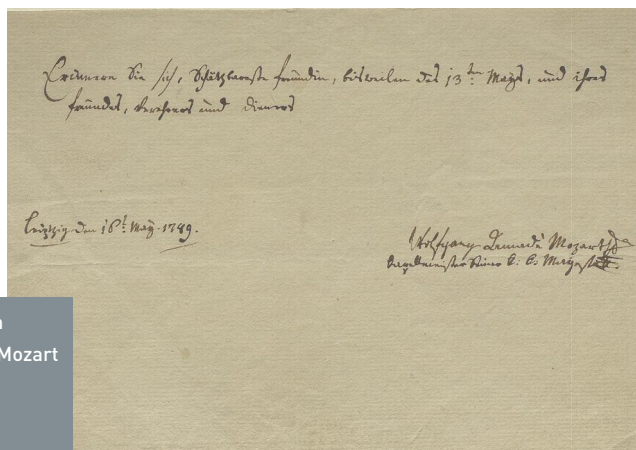 Erinnern Sie sich, Schätzbarste freundin, bisweilen des 13ten Mays, und ihres
freundes, Verehrers und dieners
Leipzig den 16t May 1789.
Wolfgang Amadè Mozart
kapellmeister Seiner k: k: Mayestät.
Mozart